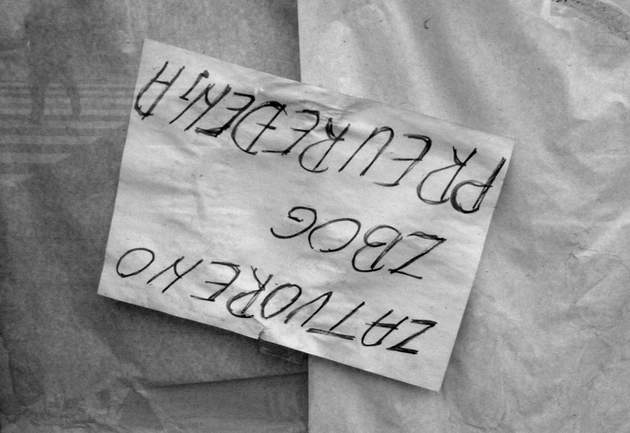 ZATVORENO
ZBOG
PREUREĐENJA